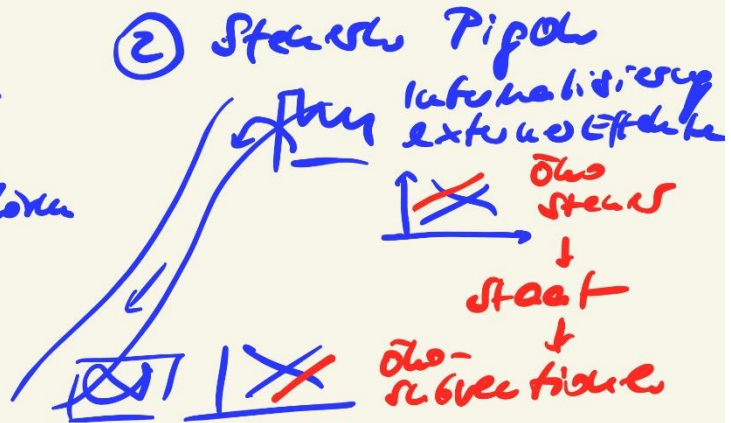 ② Steuern Pigou
Internalisierung
externer Effekte
Öko
steuer
Staat
Öko-
subventionen